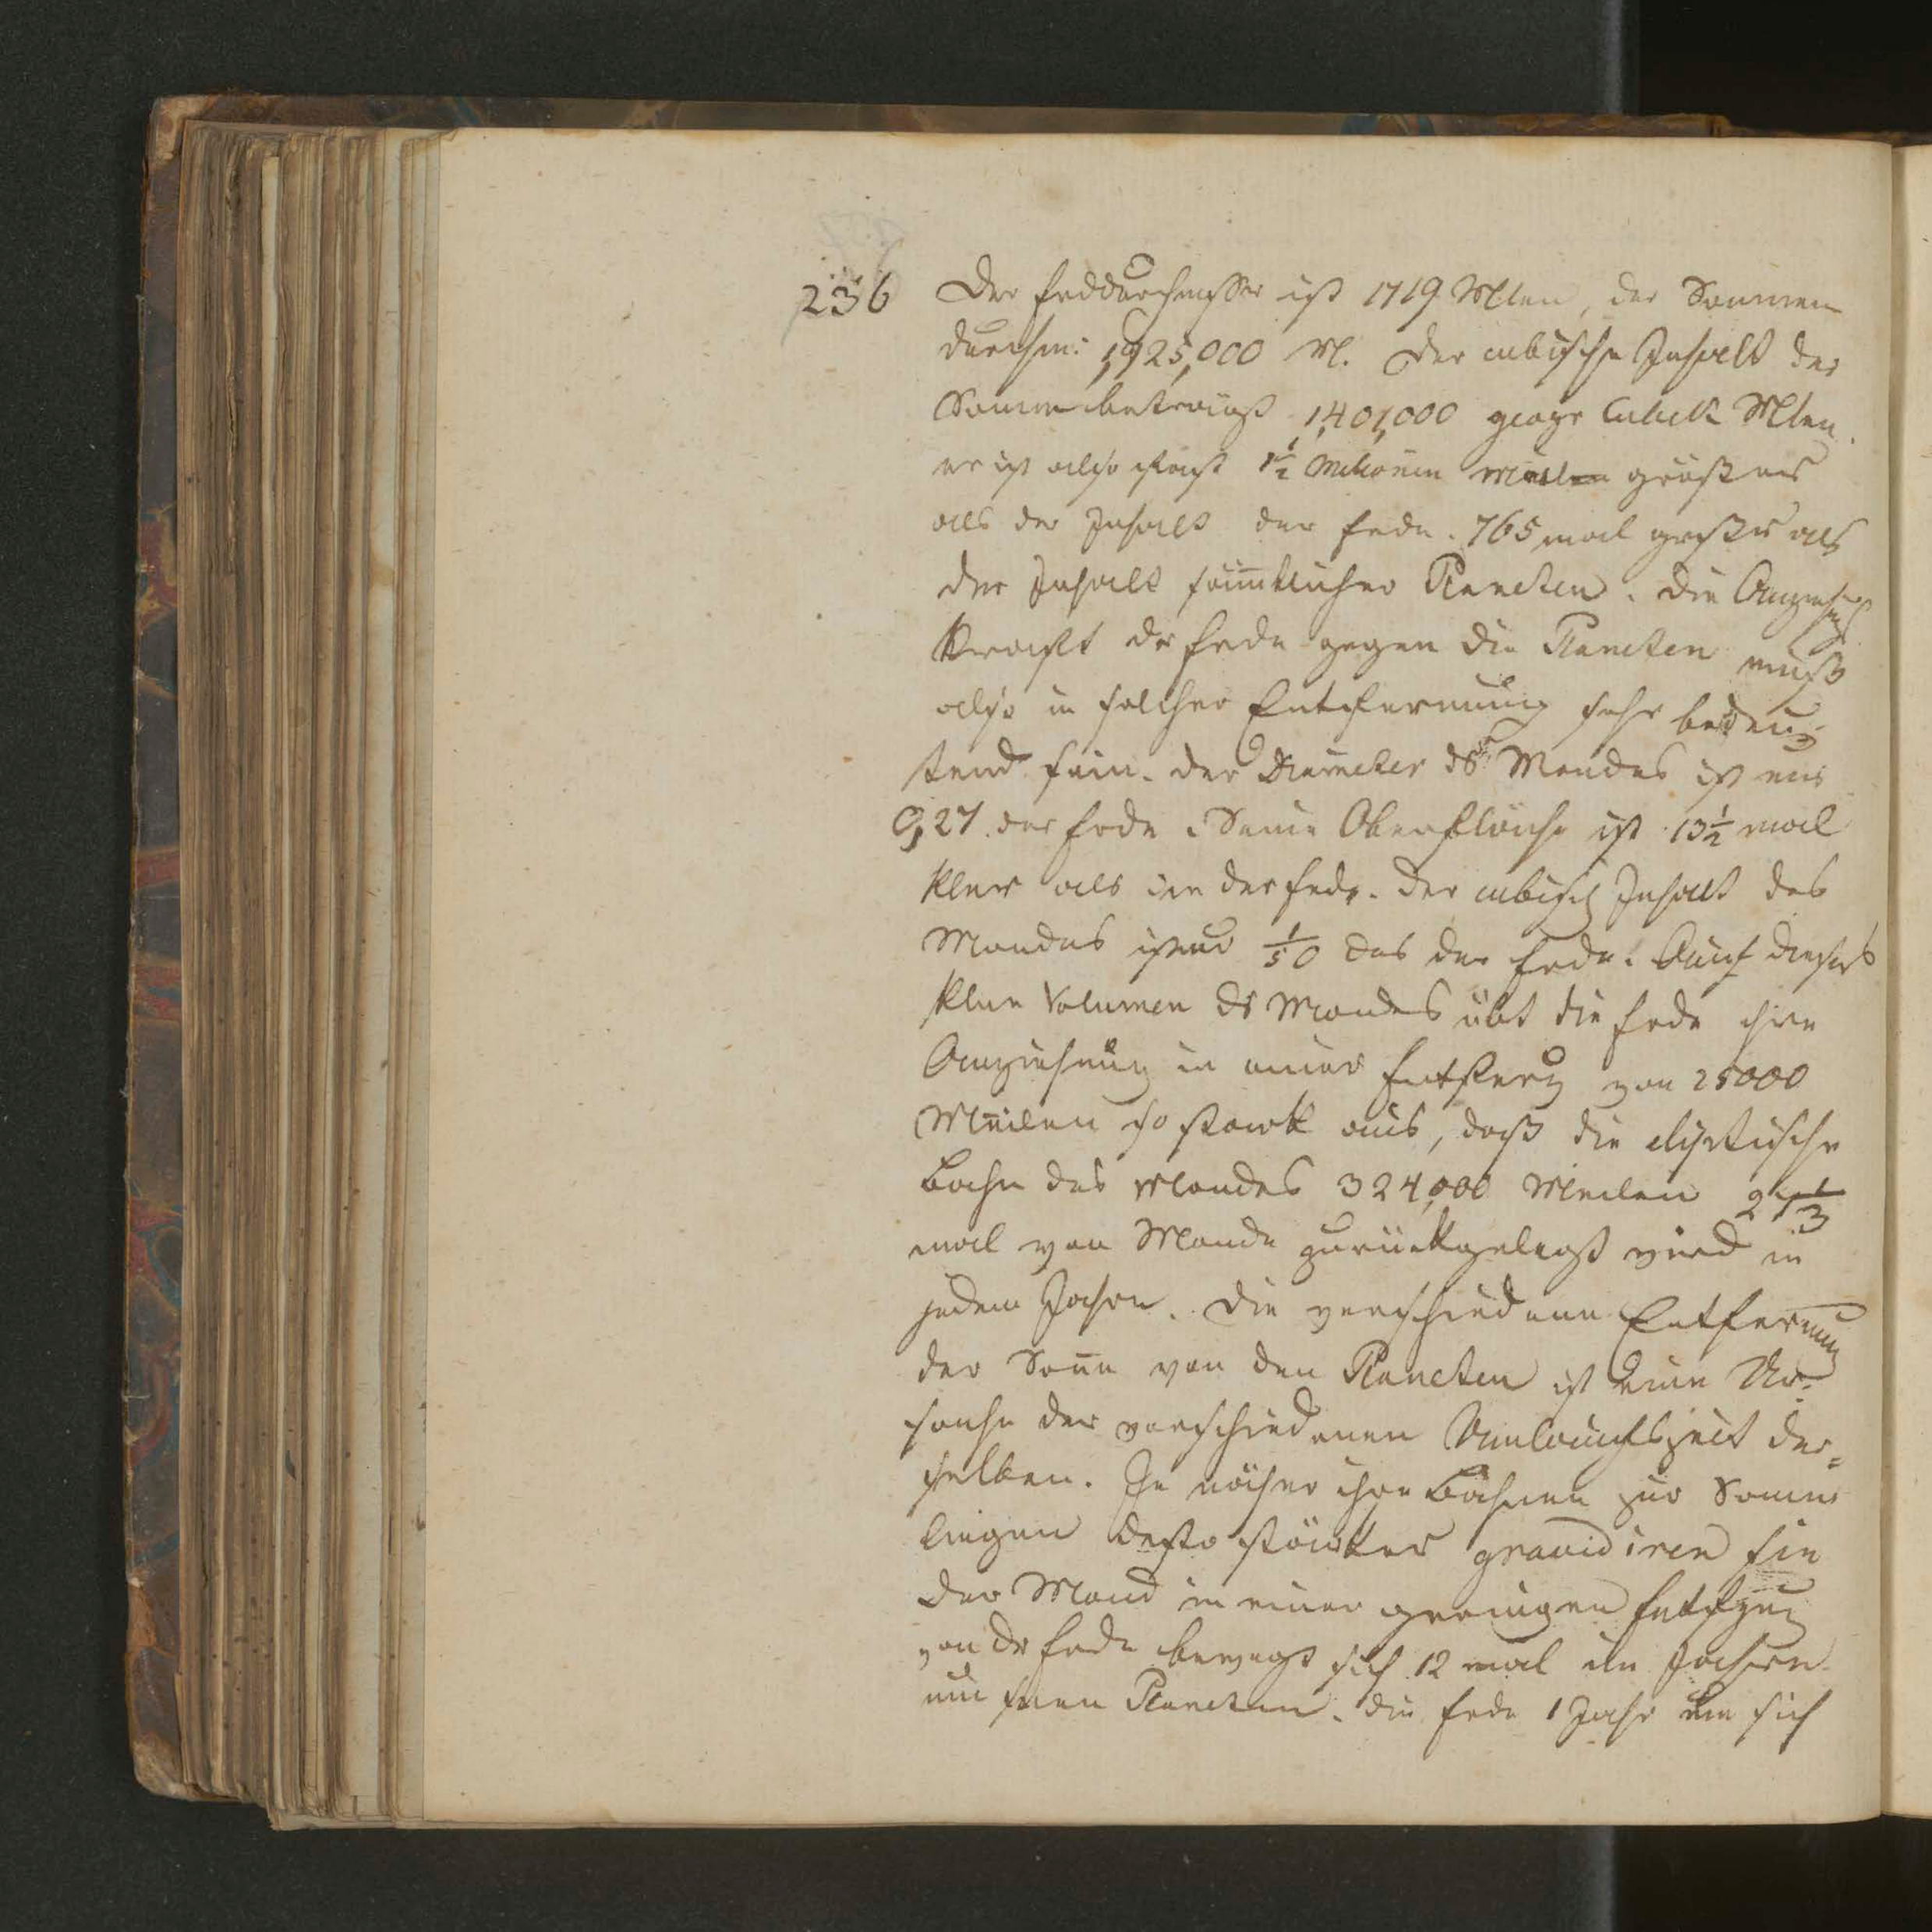 236
Der Erddurchmesser ist 1719 Mlen, der Sonnen
durchm: 1,925,000 M. Der cubische Inhalt der
Sonne beträgt 1,401,000 geogr Cubick Mlen.
er ist also fast 1½ Millionen größer
als der Inhalt der Erde. 765 mal größer als
der Inhalt sämtlicher Planeten. Die Anziehungs
kraft der Erde gegen die Planeten muß
also in solcher Entfernung sehr bedeu-
tend sein. Der Diameter ds Mondes ist nur
0,27 der Erde. Seine Oberfläche ist 13½ mal
kler als die der Erde. Der cubisch Inhalt des
Mondes ist nur 1/50 des der Erde. Auf dieses
kleine Volumen ds Mondes übt die Erde ihre
Anziehung in einer Entferng von 25000
Meilen so stark aus, daß die eliptische
Bahn des Mondes 324,000 Meilen
mal vom Monde zurückgelegt wird in
jedem Jahre. Die verschiedene Entfernung
der Soñe von den Planeten ist eine Ur-
sache der verschiedenen Umlaufszeit der=
selben. Je näher ihre Bahnen zur Sonne
liegen desto stärker gravidiren sie
Der Mond in einer geringen
von dr Erde bewegt sich 12 mal im Jahre
um seinen Planeten. Die Erde 1 Jahr um sich